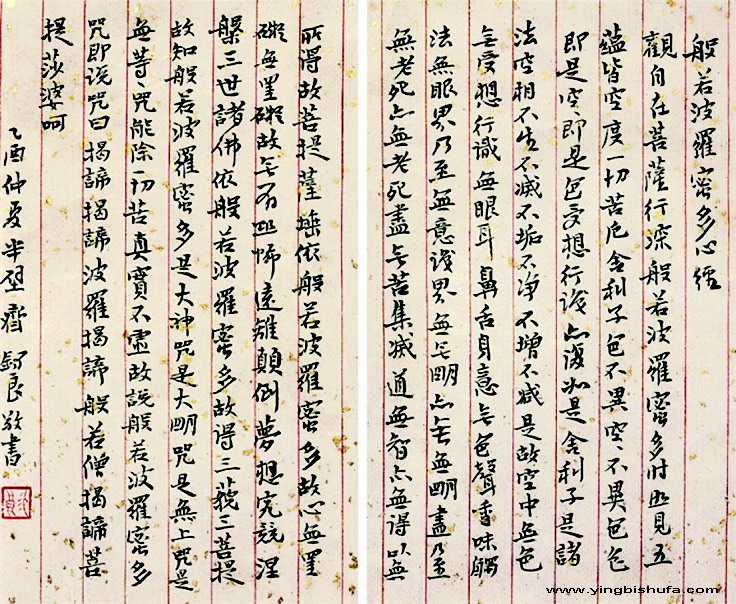 般若波羅蜜多心經
觀自在菩薩行深般若波羅蜜多時照見五
蘊皆空度一切苦厄舍利子色不異空空不異色色
即是空即是色受想行識亦復如是舍利子是諸
法空相不生不滅不垢不净不增不減是故空中無色
无受想行識無眼耳鼻舌身意无色聲香味觸
法無眼界乃至無意識界無无明亦无無明盡乃至
無老死亦無老死盡无苦集滅道無智亦無得以無
所得故菩提薩埵依般若波羅蜜多故心無罣
礙無罣礙故无有恐怖遠離顛倒夢想究竟涅
槃三世諸佛依般若波羅蜜多故得三藐三菩提
故知般若波羅蜜多是大神咒是大明咒是無上咒是
無等咒能除一切苦真實不虛故説般若波羅蜜多
咒即说咒曰揭諦揭諦波羅揭諦般若僧揭諦菩
提莎婆呵
乙酉仲夏半壁齋 錫良敬書
www.yingbishufa.com